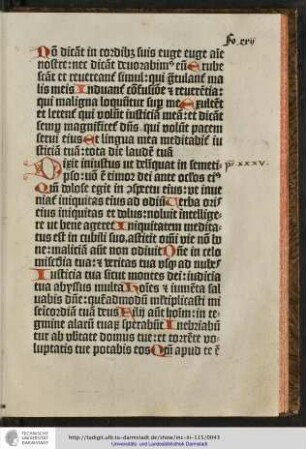 Fo xxv
Nō dicāt in cordibꝫ suis euge euge aīe
nostre: nec dicāt deuorabimꝰ eū Erube
scāt et reuereant̄ simul: qui gͣtulant̄ ma
lis meis Induant̄ cōfusiōe ⁊ reuerētia: 
qui maligna loquūtur sup me Exultēt
et letent̄ qui volūt iusticiā meā: et dicāt
semp magnificet̄ dn̄s. qui volūt pacem
serui eius Et lingua mea meditabit̄ iu
sticiā tuā: tota die laudē tuā
Dixit iniustus ut delinquat in semeti
pso: nō ē timor dei ante oc̄los eiꝰ
ps xxxv.
Qm̄ dolose egit in ꝯspectu eius: ut inue
niat̄ iniquitas eius ad odiū Verba oris
eius iniquitas et dolus: noluit intellige
re ut bene ageret Iniquitatem medita
tus est in cubili suo. astitit om̄i vie nō bo
ne: maliciā aūt non odiuit Dn̄e in celo
misc̄dia tua: ⁊ veritas tua vsqꝫ ad nubes
Iusticia tua sicut montes dei: iudicia
tua abyssus multa Hoīes ⁊ iumēta sal
uabis dn̄e: quēadmodū multiplicasti mi
sericordiā tuā deus Filij aūt hoīm: in te
gmine alarū tuaꝝ sperabūt Inebriabūt
tur ab vbertate domus tue: et torrēte vo
luptatis tue potabis eos Qm̄ apud te ē
TECHNISCHE
UNIVERSITÄT
DARMSTADT
http://tudigit.ulb.tu-darmstadt.de/show/inc-iii-125/0043
Universitäts- und Landesbibliothek Darmstadt